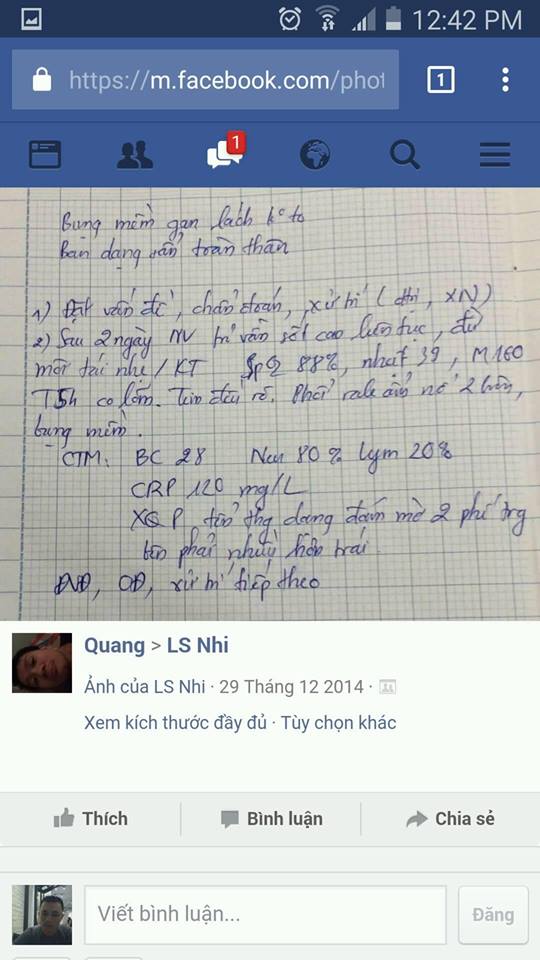 12:42 PM
https://m.facebook.com/phot
1
1
Bụng mềm gan lách k° to
Ban dạng sẩn toàn thân
1) Đặt vấn đề, chẩn đoán, xử trí (đtrị, XN)
2) Sau 2 ngày NV trẻ vẫn sốt cao liên tục, đừ
môi tái nhẹ / KT SpO2 88%, nhiệt 39, M 160
T 5h co lõm. Tim đều rõ. Phổi rale ẩm nổ 2 bên,
bụng mềm.
CTM: BC 28 Neu 80% lym 20%
CRP 120 mg/L
XQ P tổn thg dạng đám mờ 2 phế trg
bên phải nhiều hơn trái.
CĐ, xử trí tiếp theo
Quang > LS Nhi
Ảnh của LS Nhi · 29 Tháng 12 2014 ·
Xem kích thước đầy đủ · Tùy chọn khác
Thích Bình luận Chia sẻ
Viết bình luận... Đăng